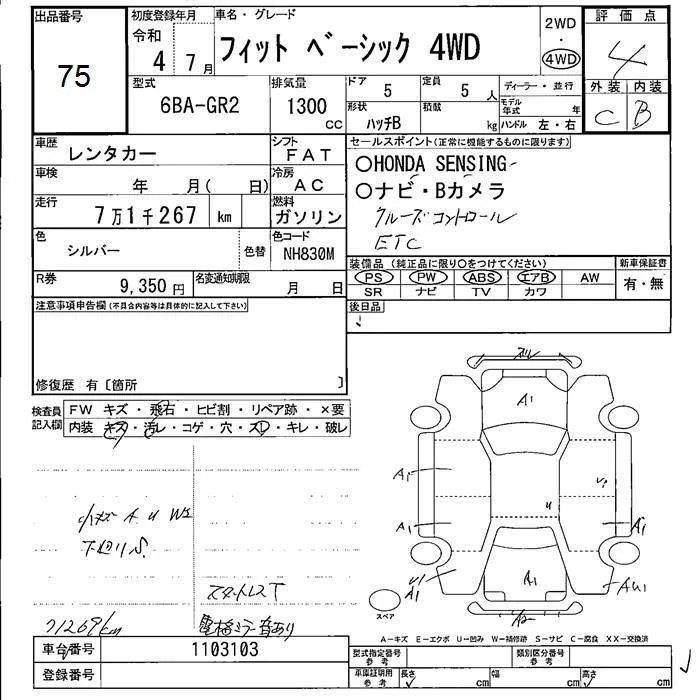 出品番号
75
初度登録年月
令和
4 7月
車名・グレード
フィット ベーシック 4WD
2WD
・
4WD
評価点
4
外装 内装
C B
型式
6BA-GR2
排気量
1300
cc
ドア
5
定員
5 人
形状
ハッチB
積載
kg
ディーラー・並行
モデル
年式 年
ハンドル 左・右
車歴
レンタカー
シフト
FAT
車検
年 月( 日)
冷房
AC
走行
7万1千267 km
燃料
ガソリン
色
シルバー
色替
色コード
NH830M
R券
9,350 円
名変通知期限
月 日
セールスポイント(正常に機能するものに限ります)
○HONDA SENSING
○ナビ・Bカメラ
クルーズコントロール
ETC
装備品(純正品に限り○をつけてください)
PS PW ABS エアB AW
SR ナビ TV カワ
新車保証書
有・無
注意事項申告欄(不具合内容等は具体的に記入して下さい)
後日品
修復歴 有〔箇所 〕
検査員
記入欄
FW キズ・飛石・ヒビ割・リペア跡・×要
内装 キズ・汚レ・コゲ・穴・スレ・キレ・破レ
小キズ A U W2
下廻りS
スタットレスT
71269km
電格ミラー音あり
スレ
A1
A1
A1
U
A1
A1
U1
A1
AU1
スペア
A－キズ E－エクボ U－凹み W－補修跡 S－サビ C－腐食 XX－交換済
車台番号
1103103
登録番号
型式指定番号
参考
類別区分番号
参考
車庫証明用
参考
長さ cm
幅 cm
高さ cm